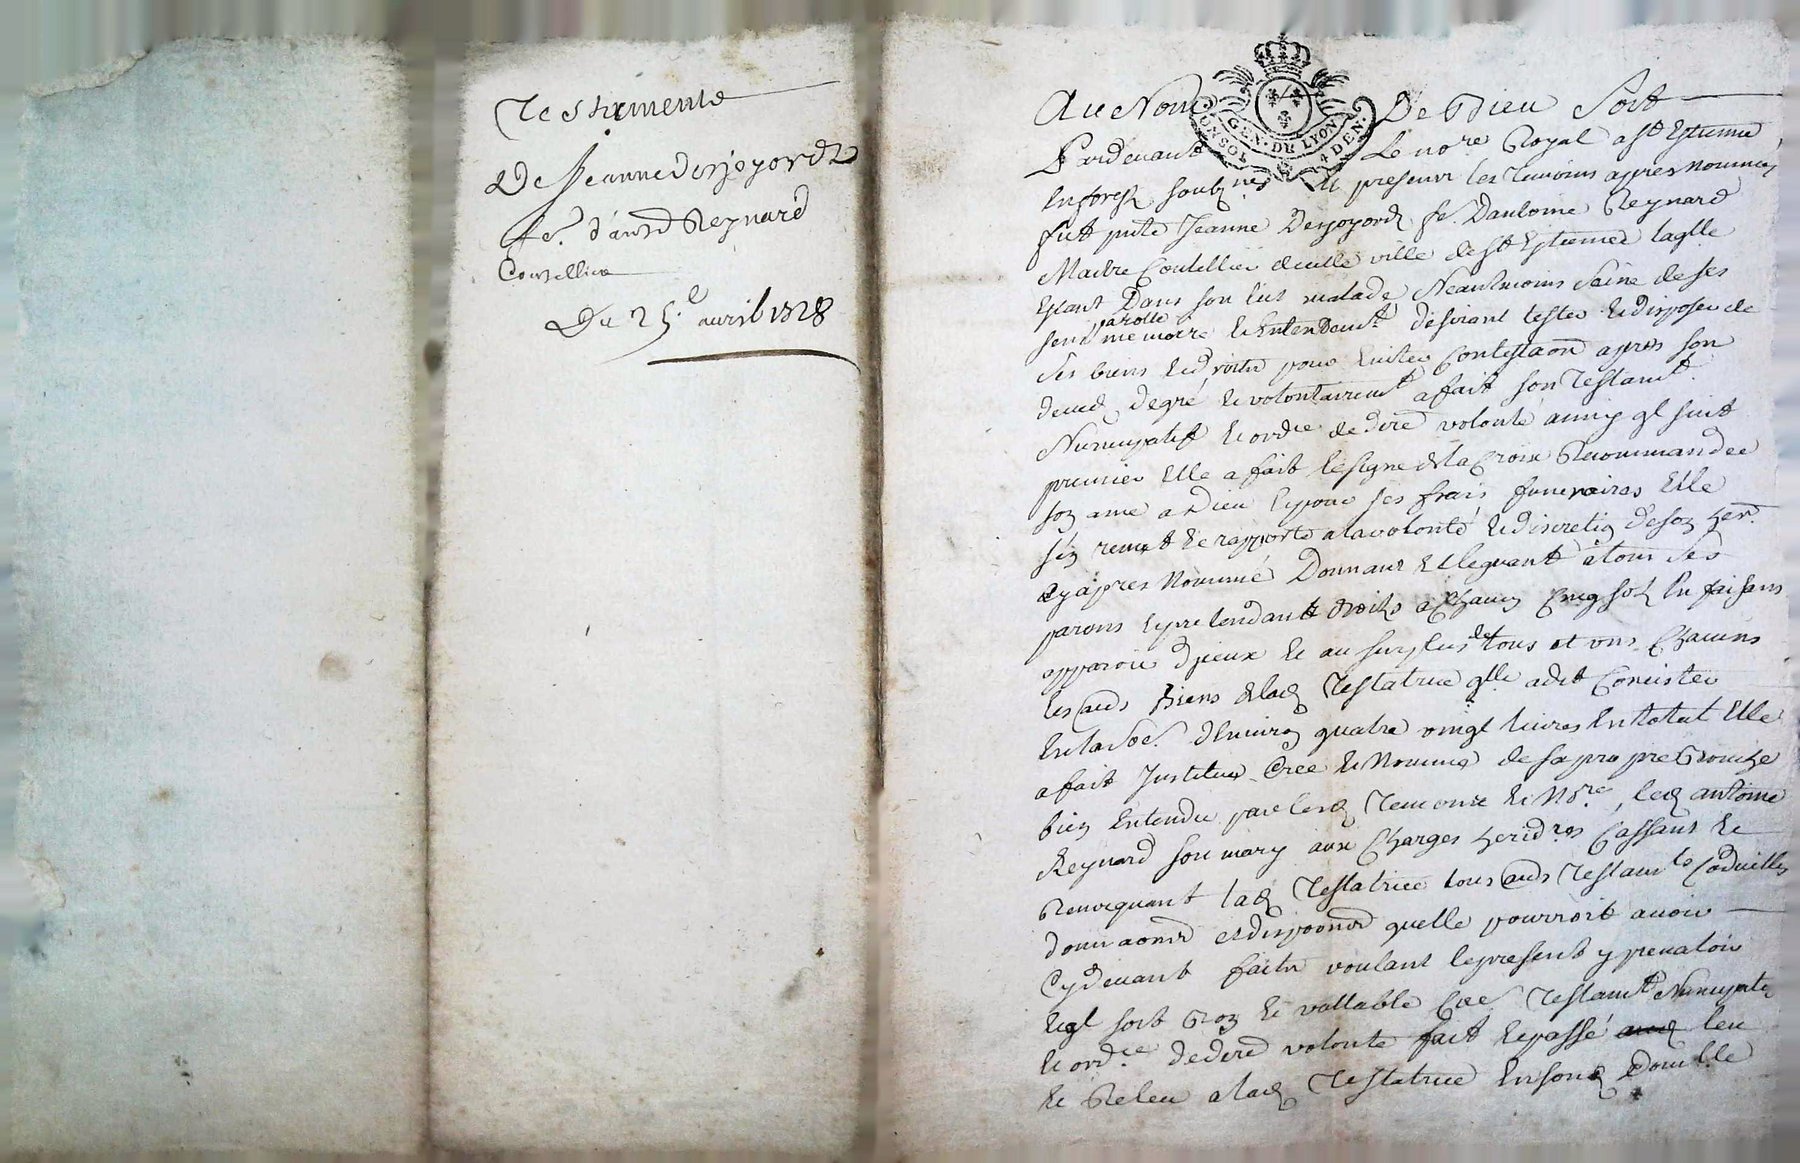 Testament
De Jeanne Desjoyordz
fe. d'antd Reynard
Coutellier
Du 25.e avril 1728
Au Nom De Dieu Soit
GEN. DE LYON
UN SOL 4 DEN.
Pardevant Le no.re Royal a st Estienne
En forest soubz.né Et presentz les Temoins apres nommés
fut pnte Jeanne Desjoyordz fe. Dantoine Reynard
Maitre Coutellier de cette ville de st Estienne laqlle
Estant Dans son lict malade Neantmoins Saine de ses
sens parolle memoire Et Entendem.t desirant tester Et disposer de
Ses biens Et droitz pour Eviter Contestaon apres son
deced degré Et volontairem.t a fait son Testam.t
Nuncupatif Et ord.ce de dre volonté ainsy ql suit
premier Elle a fait le signe de la Croix Recommandée
son ame a Dieu Et pour ses frais funeraires Elle
s'en remet Et rapporte a la volonté Et discretion de son her.
cy apres Nommé Donnant Et leguant a tous Ses
parens Et pretendantz droitz a Chacun Cinq solz En faisans
apparoir d'yceux Et au surplus de tous et uns Chacuns
les aud Biens de lad Testatrice qlle a dit Consister
En la Soe. d'Environ quatre vingt livres En total Elle
a fait Institué Créé Et Nommé de sa propre Bouche
bien Entendue par lesd Temoins Et No.re, led antoine
Reynard son mary aux Charges heridres Cassant Et
Revoquant lad Testatrice tous auds Testam.ts Codicilles
donnaons et disponons quelle pourroit avoir
Cy devant faits voulant le present y prevaloir
Et ql soit Bon Et vallable Coe Testam.t Nuncupatif
Et ord.ce de dre volonté fait Et passé leu
Et Releu a lad Testatrice En son Domicille